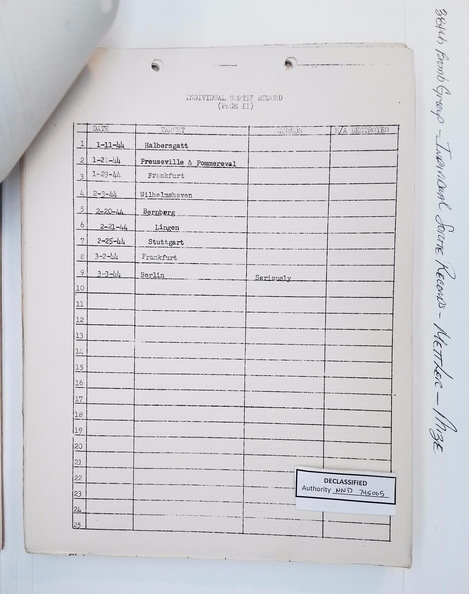 INDIVIDUAL SORTIE RECORD
(PAGE II)
DATE TARGET E/A DESTROYED
1 1-11-44 Halbersgatt
2 1-21-44 Preuseville & Pommereval
3 1-29-44 Frankfurt
4 2-3-44 Wilhelmshaven
5 2-20-44 Bernberg
6 2-21-44 Lingen
7 2-25-44 Stuttgart
8 3-2-44 Frankfurt
9 3-3-44 Berlin Seriously
10
11
12
13
14
15
16
17
18
19
20
21
22
23
24
25
DECLASSIFIED
Authority NND 745005
384th Bomb Group - Individual Sortie Record - Mettler - Mize